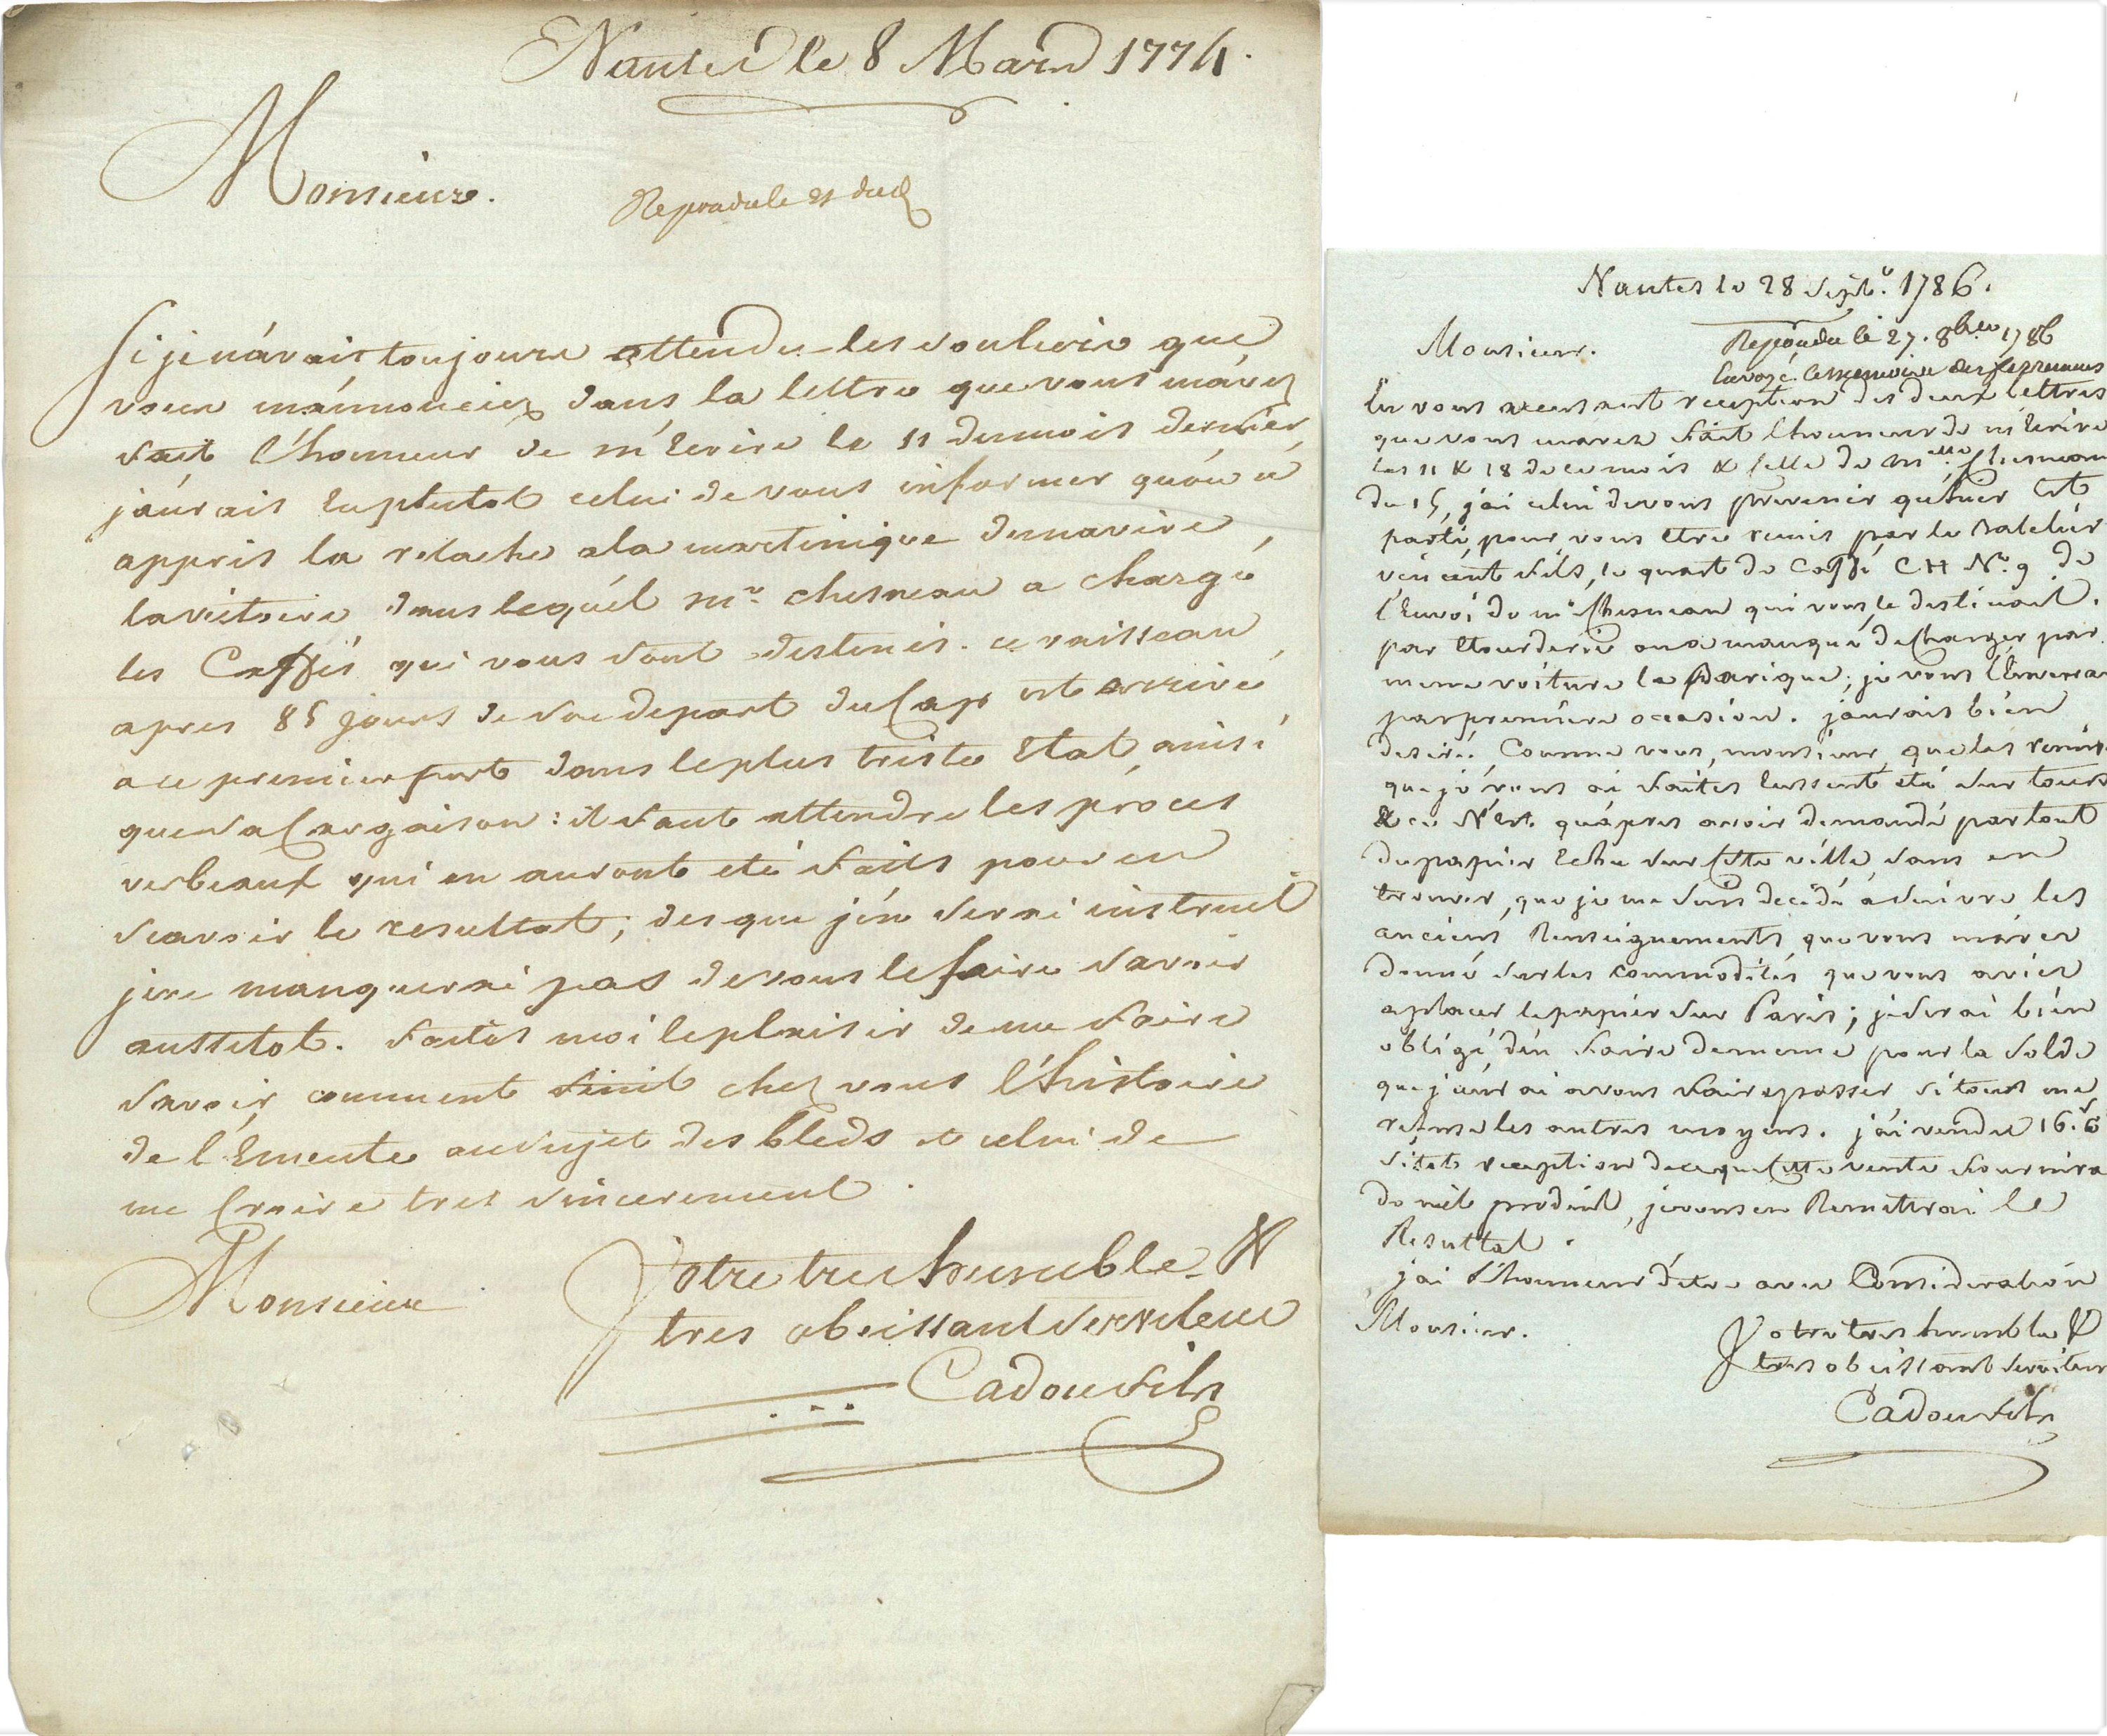 Nantes le 8 Mars 1774.
Monsieur.
Repondu le 21 dud
Si je n'avais toujours attendu les souliers que
vous m'annonciez dans la lettre que vous m'avez
fait l'honneur de m'Ecrire le 11 du mois dernier,
j'aurais Eu plutot celui de vous informer qu'on a
appris la relache a la martinique du navire
la victoire dans lequel mr. chesneau a chargé
les Caffés qui vous sont destinés. ce vaisseau,
apres 85 jours de son depart du Cap est arrivé
a ce premier port dans le plus triste Etat, ainsi
que sa Cargaison : il faut attendre les procès
verbeaux qui en auront eté faits pour en
scavoir le resultat; des que j'en serai instruit
je ne manquerai pas de vous le faire savoir
aussitot. faites moi le plaisir de me faire
savoir comment finit chez vous l'histoire
de l'Emeute au sujet des bleds et celui de
me Croire tres sincerement.
Monsieur
Votre tres humble &
tres obeissant serviteur
Cadou fils
Nantes le 28 Septb. 1786.
Monsieur.
Repondu le 27. 8bre 1786
Envoyé le memoire des
En vous accusant reception des deux lettres
que vous m'avez fait l'honneur de m'Ecrire
les 11 & 18 de ce mois & Celle de Melle Chesneau
du 15, j'ai celui de vous prevenir qu'hier Est
parti, pour vous etre remis par le batelier
vincent fils, le quart de Caffé CH No. 9 de
l'Envoi de mr Chesneau qui vous le destinait.
par Etourderie on a manqué de Charger par
meme voiture la Barique; je vous l'Enverrai
par premiere occasion. j'aurais bien
desiré, Comme vous, monsieur, que les remises
que je vous ai faites Eussent eté sur tours
& ce N'Est qu'apres avoir demandé partout
du papier Echu sur Cette ville, sans en
trouver, que je me suis decidé a suivre les
anciens Renseignements que vous m'avez
donné sur les commodités que vous aviez
a placer le papier sur Paris; je serai bien
obligé d'en faire de meme pour la solde
que j'aurai a vous faire passer si tours me
refuse les autres moyens. j'ai vendu 16.s 6
sitot reception de ce que Cette vente fournira
de net produit, je vous en Remettrai le
Resultat.
j'ai l'honneur d'etre avec Consideration
Monsieur.
Votre tres humble &
tres obeissant serviteur
Cadou fils